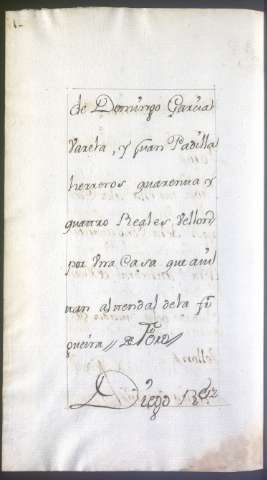 de Domingo Garcia
Varela, y Juan Padilla
herreros quarenta y
quattro Reales Vellon
por Vna Casa que avi
tan al rrendal dela fu
queira //
Diego